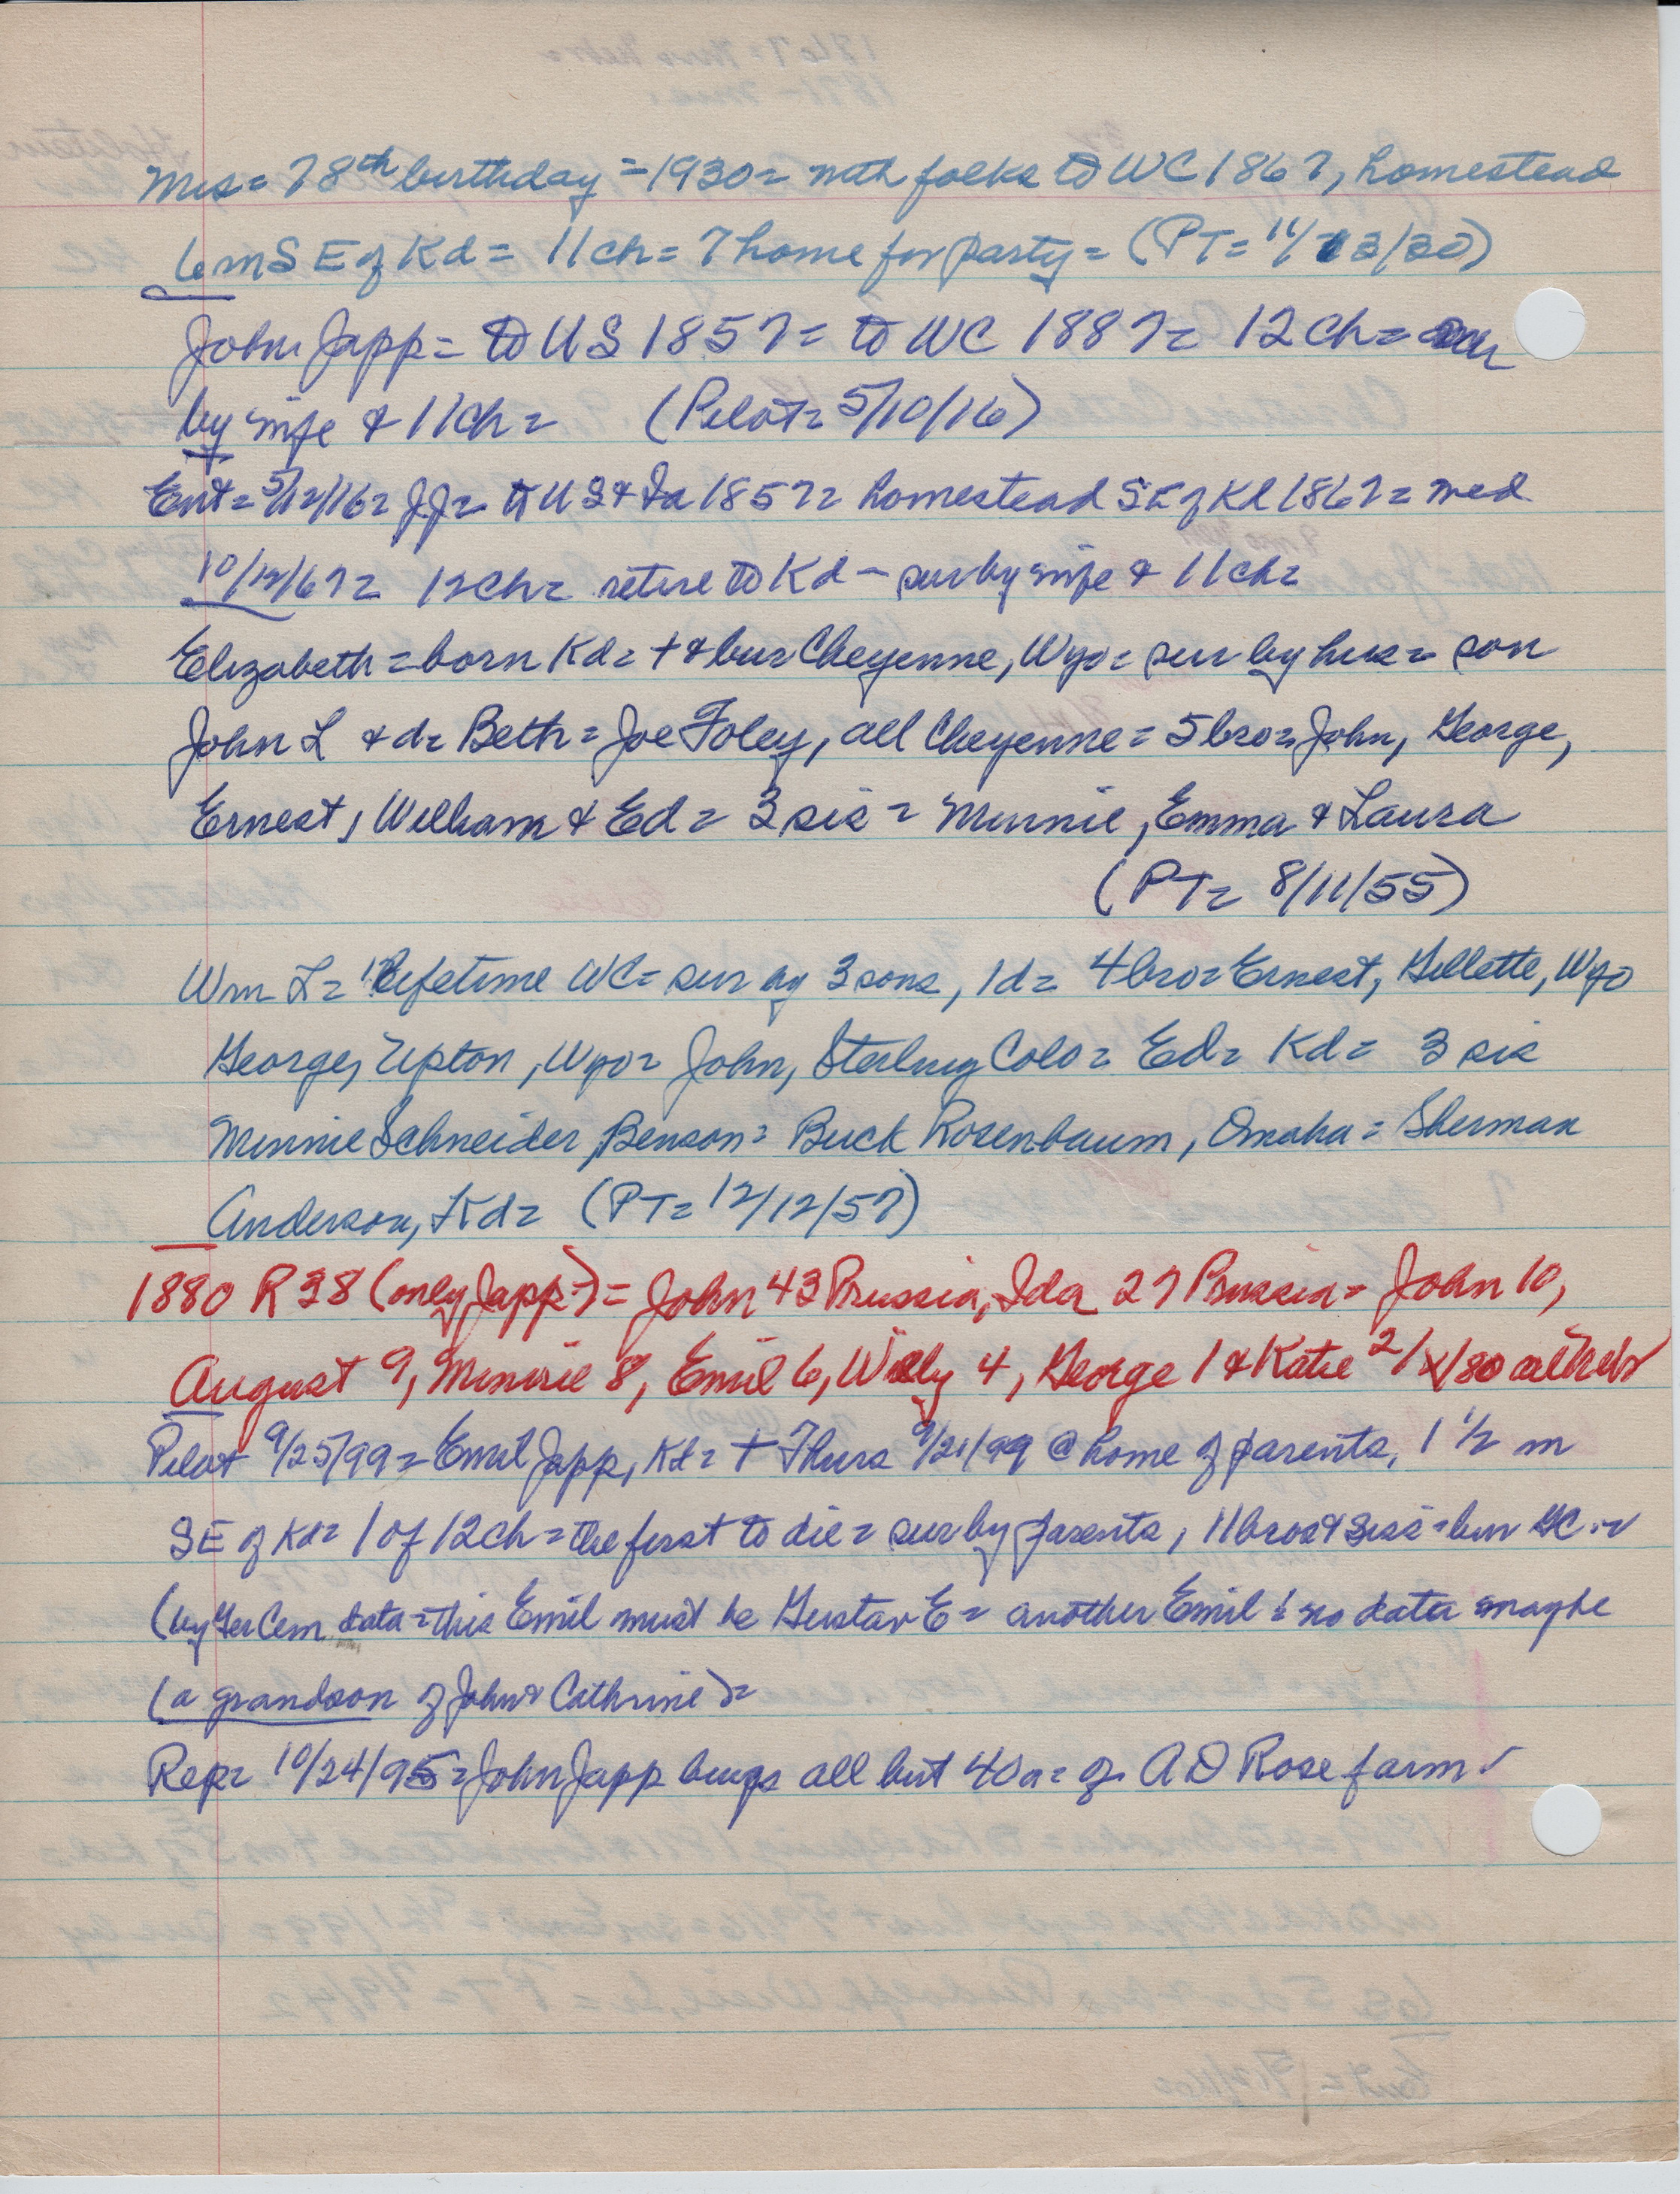 Mrs = 78th birthday = 1930 = with folks to WC 1867, homestead
6 m S E of Kd = 11 ch = 7 home for party = (PT = 11/13/30)
John Japp = to US 1857 = to WC 1887 = 12 ch = sur
by wife & 11 ch = (Pilot = 5/10/16)
Ent = 5/12/16 = JJ = to US & Ia 1857 = homestead SE of Kd 1867 = med
10/12/67 = 12 ch = retire to Kd - sur by wife & 11 ch =
Elizabeth = born Kd = + & bur Cheyenne, Wyo = sur by hus = son
John L & d = Beth = Joe Foley, all Cheyenne = 5 bro = John, George,
Ernest, William & Ed = 3 sis = Minnie, Emma & Laura
(PT = 8/11/55)
Wm L = lifetime WC = sur by 3 sons, 1 d = 4 bro = Ernest, Gillette, Wyo
George, Upton, Wyo = John, Sterling Colo = Ed = Kd = 3 sis
Minnie Schneider, Benson = Buck Rosenbaum, Omaha = Sherman
Anderson, Kd = (PT = 12/12/57)
1880 R 38 (only Japp =) = John 43 Prussia, Ida 27 Prussia = John 10,
August 9, Minnie 8, Emil 6, Willy 4, George 1 & Katie 2/x/80 all Nebr
Pilot 9/25/99 = Emil Japp, Kd = + Thurs 9/21/99 @ home of parents, 1 1/2 m
SE of Kd = 1 of 12 ch = the first to die = sur by parents, 11 bros & sis = bur GC
(by Ger Cem data = this Emil must be Gustav E = another Emil = no data maybe
(a grandson of John & Cathrine) =
Rep = 10/24/95 = John Japp buys all but 40 a = of A D Rose farm